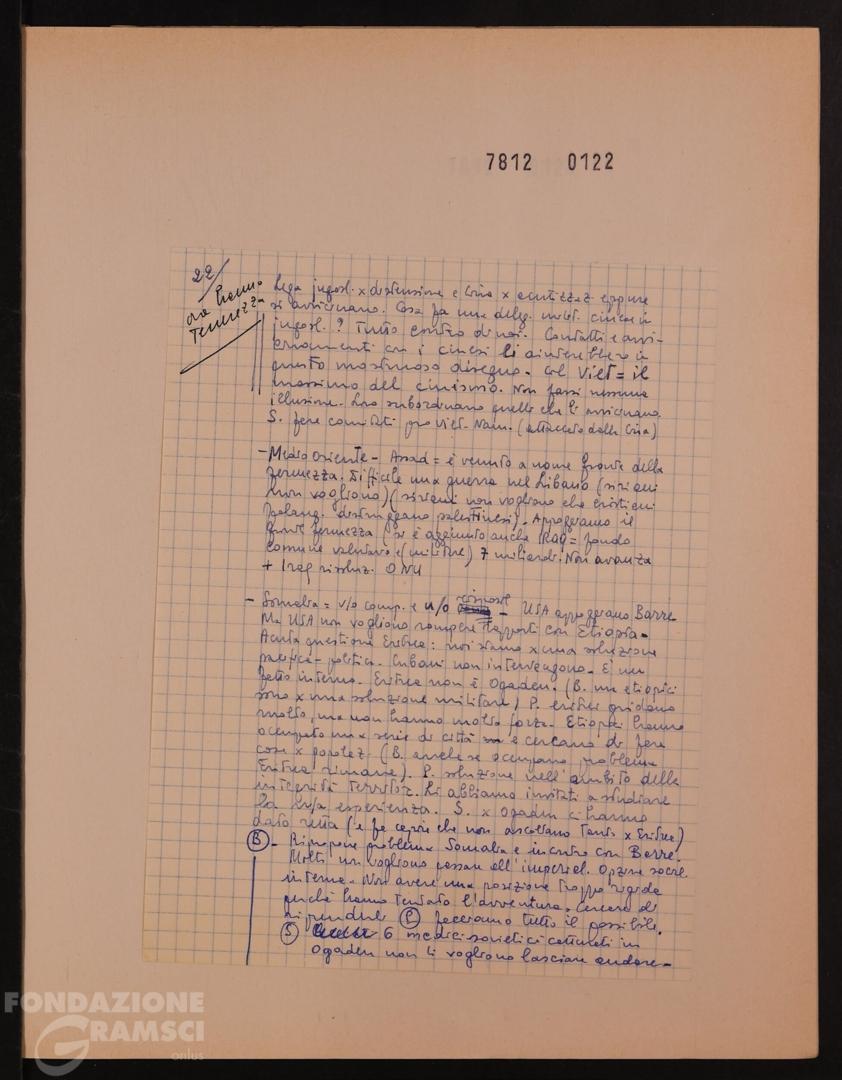 7812 0122
22/
ora hanno
Tenerezza
Lega jugosl. x distensione e Cina x acutizzaz. eppure
si avvicinano. Cosa fa una deleg. milit. cinese in
jugosl.? Tutto contro di noi. Contatti e avvi-
cinamenti con i cinesi li aiuterebbero in
questo mostruoso disegno. Col Viet = il
massimo del cinismo. Non farsi nessuna
illusione. Loro subordinano quelli che li avvicinano.
S. fare comitati pro Viet-Nam. (attaccato dalla Cina)
- Medio Oriente - Assad = è venuto a nome fronte della
fermezza. Difficile una guerra nel Libano (siriani
non vogliono) (siriani non vogliono che cristiani
falang. distruggano palestinesi). Appoggiamo il
fronte fermezza (si è aggiunto anche IRAQ = fondo
comune valutario e (militare) 7 miliardi. Non avanza
+ Iraq risoluz. ONU
- Somalia = v/o comp. e n/o - USA appoggiano Barre
Ma USA non vogliono rompere rapporti con Etiopia -
Acuta questione Eritrea: noi siamo x una soluzione
pacifica - politica. Cubani non intervengono. E' un
fatto interno. Eritrea non è Ogaden. (B. ma etiopici
sono x una soluzione militare) P. eritrei gridano
molto, ma non hanno molta forza. Etiopici hanno
occupato una serie di città e cercano di fare
cose x popolaz. (B. anche se occupano problema
Eritrea rimane). P. soluzione nell'ambito della
integrità territor. Li abbiamo invitati a studiare
la n/s esperienza. S. x Ogaden ci hanno
dato retta (e fa capire che non ascoltano tanto x Eritrea)
B - Ripropone problema Somalia e incontro con Barre.
Molti non vogliono passare all'imperial. Opzione social.
interna. Non avere una posizione troppo rigida
perché hanno tentato l'avventura. Cercare di
riprenderli P faceramo tutto il possibile.
S 6 medici sovietici catturati in
Ogaden non li vogliono lasciare andare -
FONDAZIONE
GRAMSCI
onlus